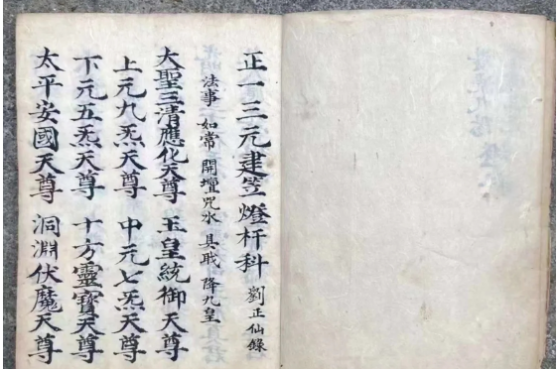 正一三元建笠燈杆科 劉正仙錄
法事 如常 開壇咒水 具職 降九皇
大聖三清應化天尊 玉皇統御天尊
上元九炁天尊 中元七炁天尊
下元五炁天尊 十方靈寶天尊
太平安國天尊 洞淵伏魔天尊